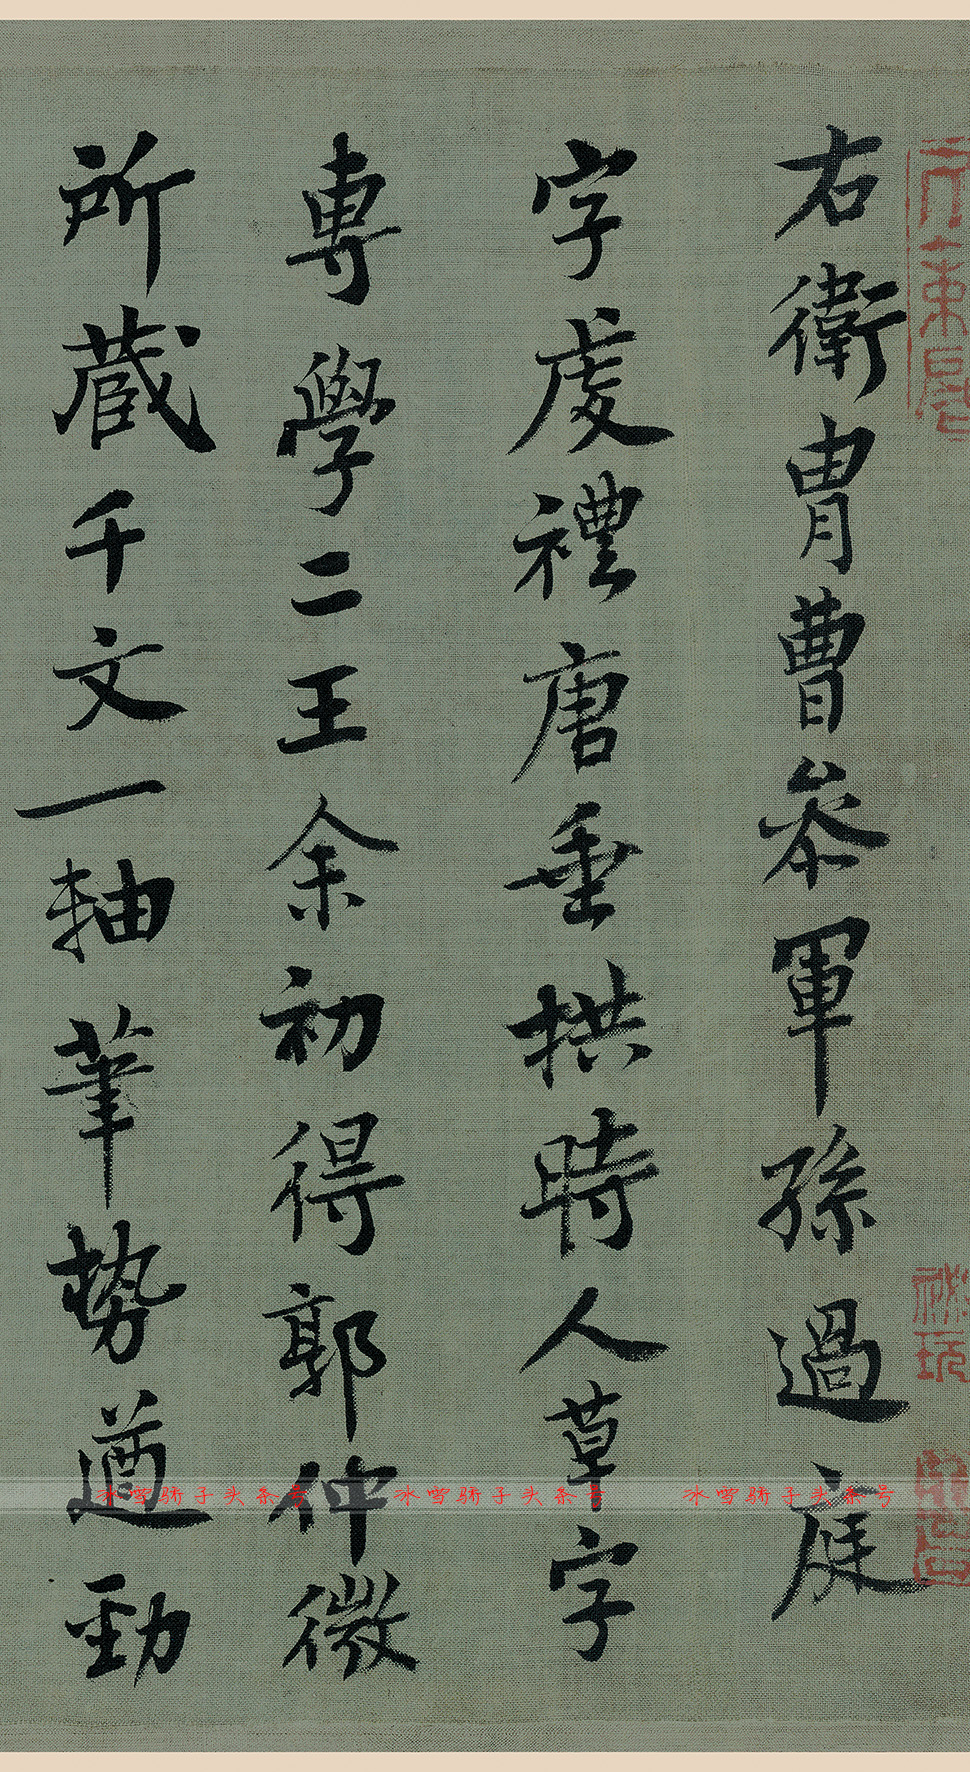 右衛冑曹叅軍孫過庭
字虔禮唐垂拱時人草字
專學二王余初得郭仲微
所蔵千文一軸筆势遒勁
冰雪骄子头条号 冰雪骄子头条号 冰雪骄子头条号